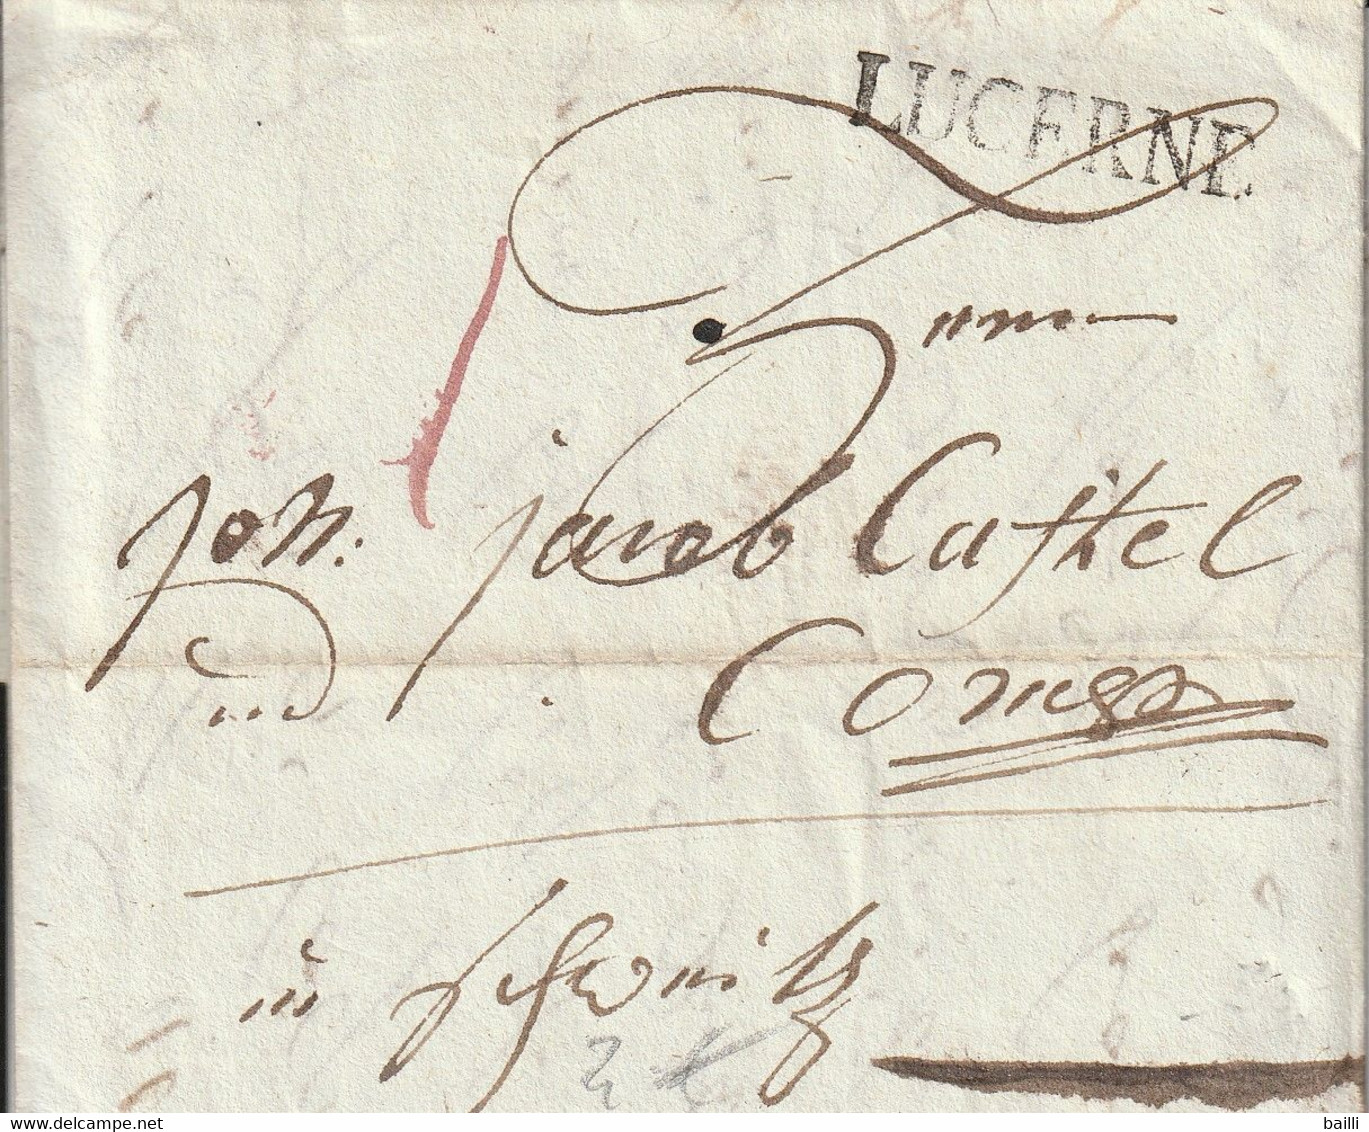 LUCERNE
Herrn
Joh. Jacob Castel
und Comp
in Schweitz
2
delcampe.net
bailli